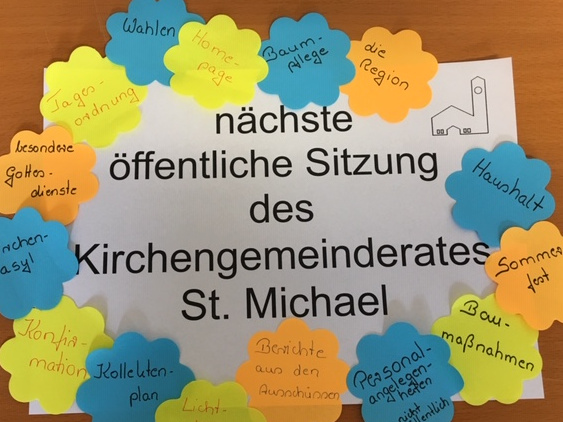 Wahlen
Home-
page
Baum-
pflege
die
Region
Tages-
ordnung
nächste
öffentliche Sitzung
des
Kirchengemeinderates
St. Michael
besondere
Gottes-
dienste
Haushalt
irchen-
asyl
Sommer
fest
Konfir-
mation
Bau-
maßnahmen
Kollekten-
plan
Licht-
Berichte
aus den
Ausschüssen
Personal-
angelegen-
heiten
nicht
öffentlich